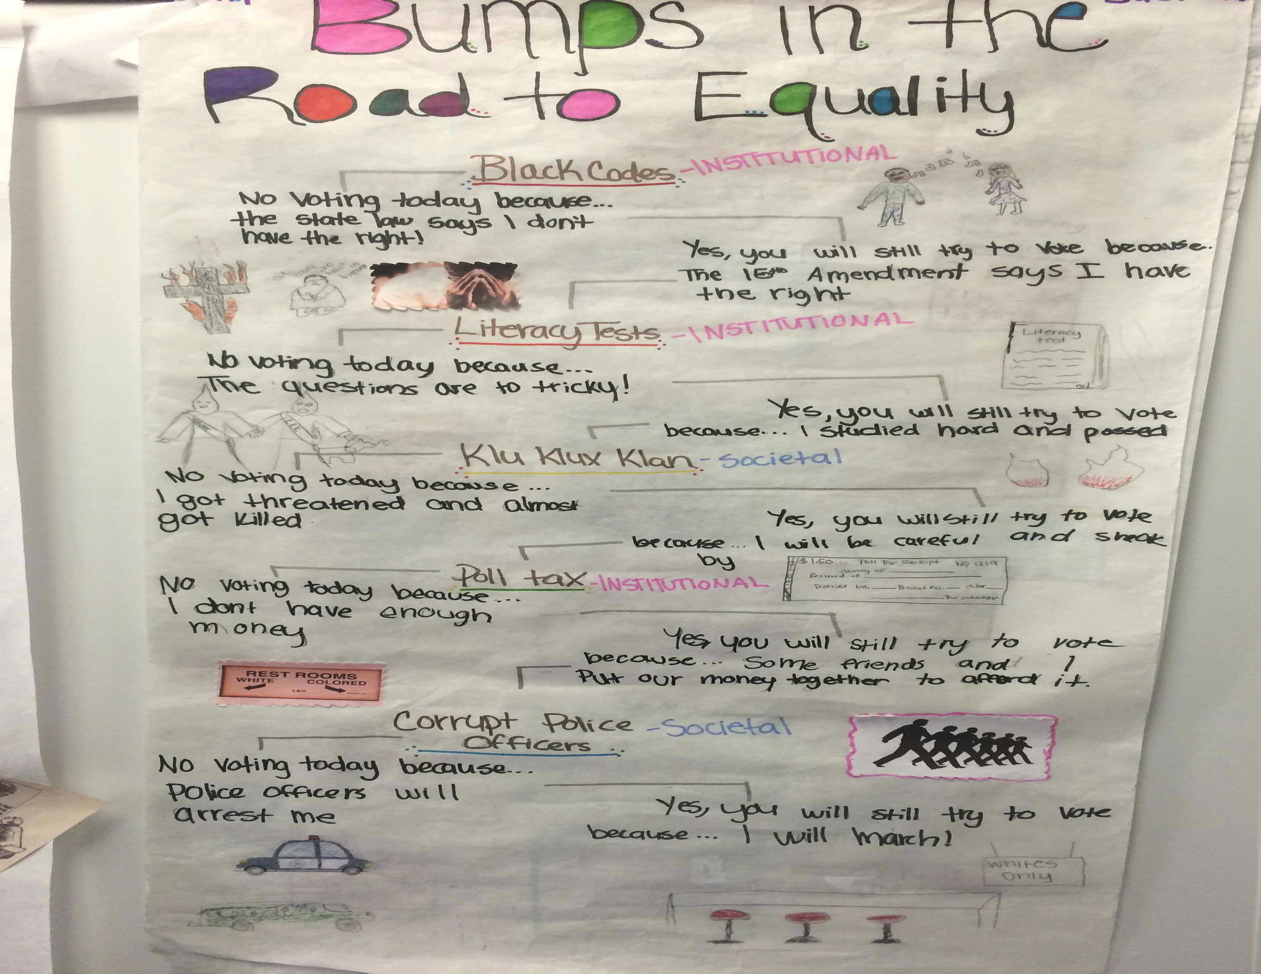 Bumps in the
Road to Equality
Black Codes - INSTITUTIONAL
No Voting today because...
the state law says I don't
have the right!
Yes, you will still try to vote because.
The 15th Amendment says I have
the right
Literacy Tests - INSTITUTIONAL
Literacy
test
No voting today because...
The questions are to tricky!
Yes, you will still try to vote
because... I studied hard and passed
Klu Klux Klan - Societal
No Voting today because ...
I got threatened and almost
got killed
Yes, you will still try to vote
because... I will be careful and sneak
by
Poll tax - INSTITUTIONAL
$1.50 Poll Receipt No
No voting today because...
I dont have enough
money
Yes you will still try to vote
because... Some friends and I
Put our money together to afford it.
REST ROOMS
WHITE COLORED
Corrupt Police - Societal
Officers
No Voting today because...
Police officers will
arrest me
Yes, you will still try to vote
because... I will march!
WHITES
ONLY